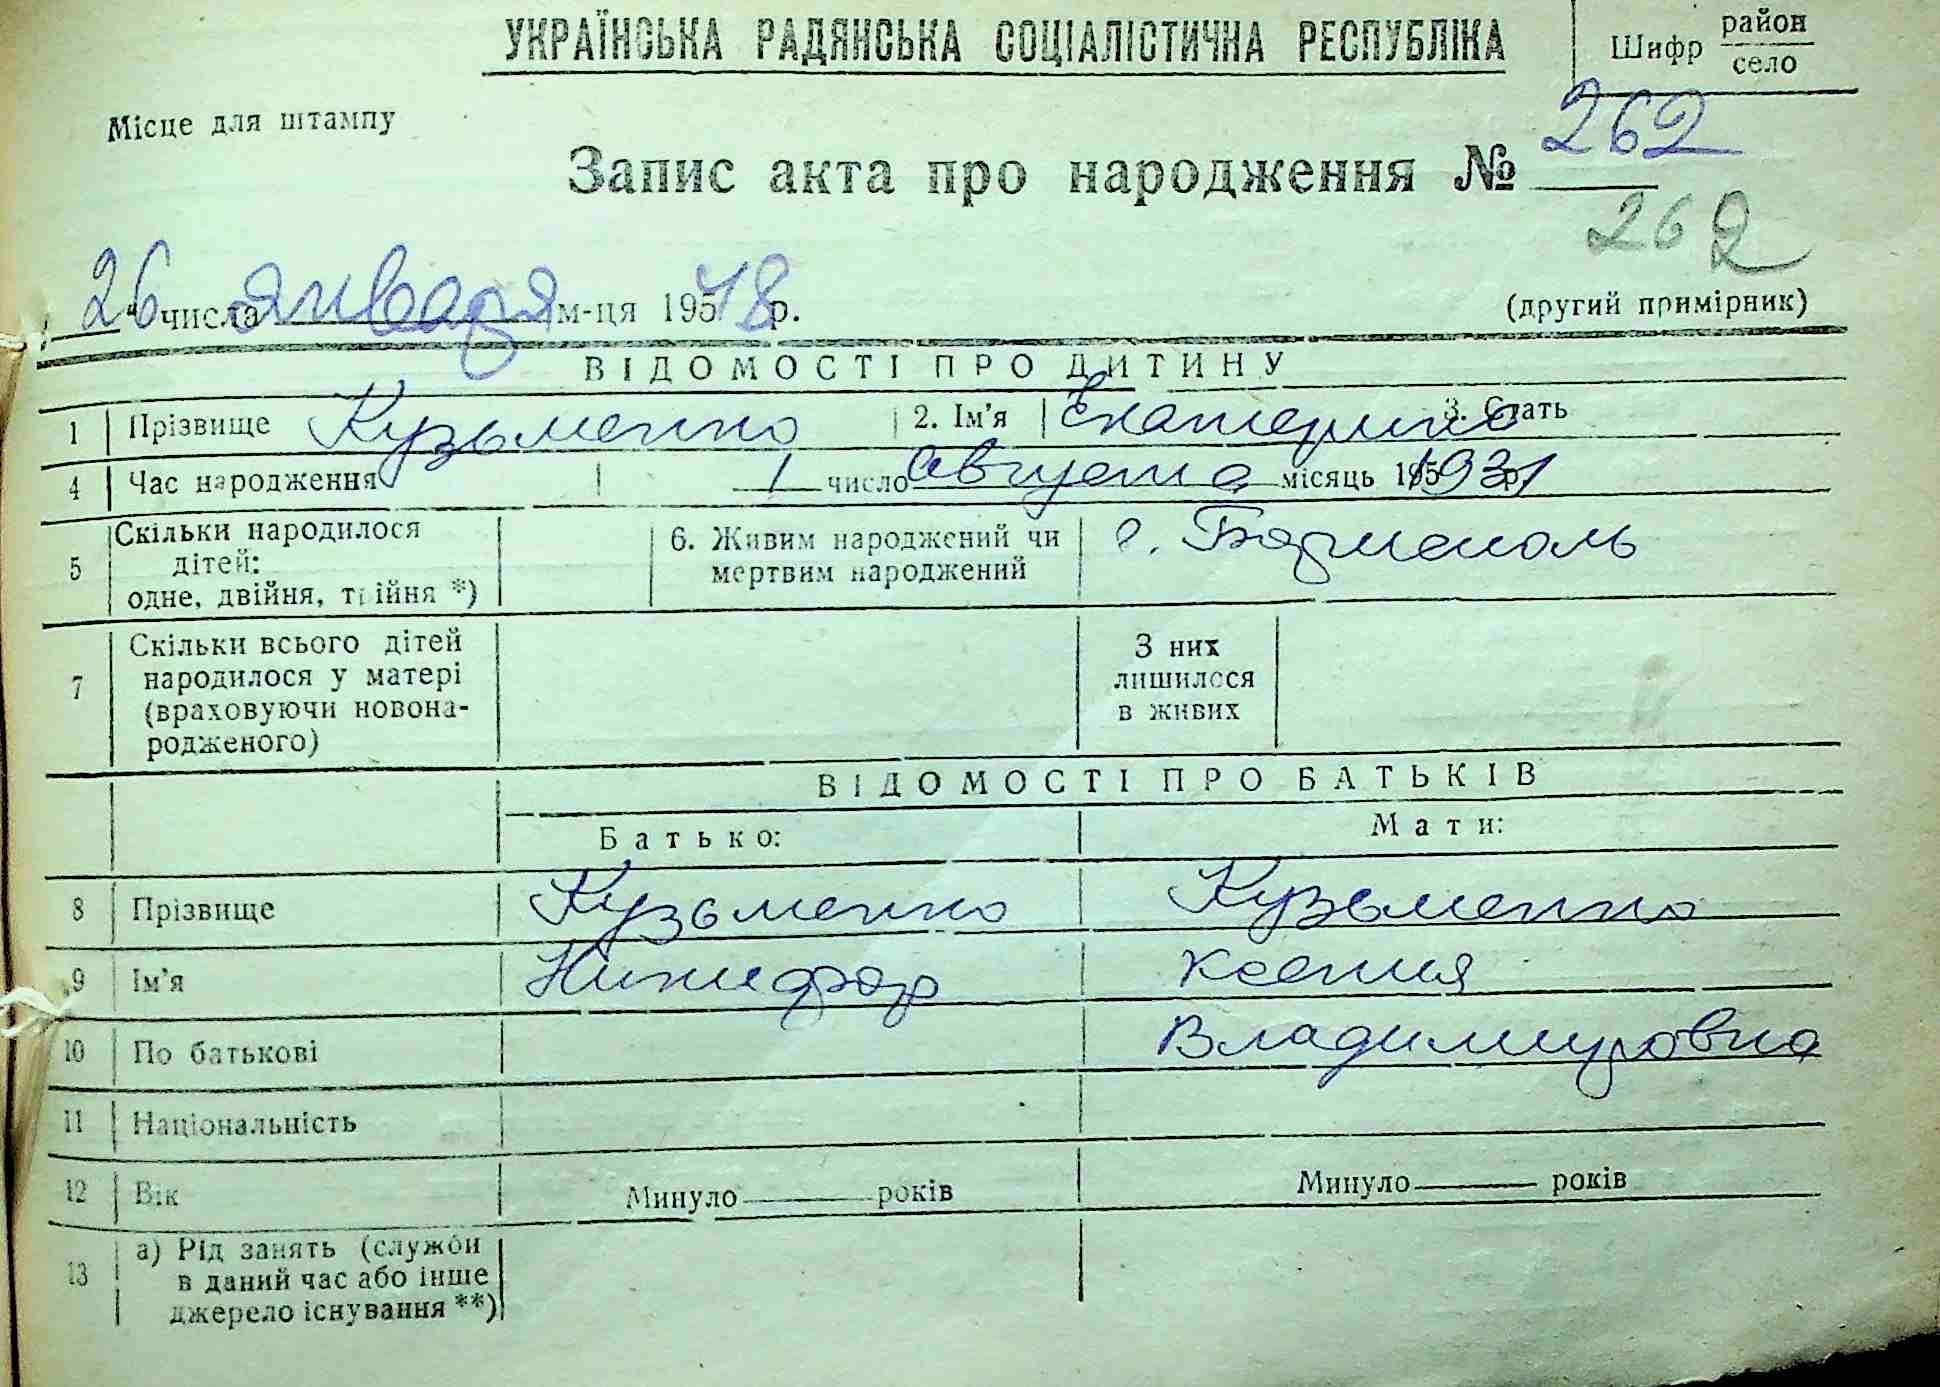 УКРАЇНСЬКА РАДЯНСЬКА СОЦІАЛІСТИЧНА РЕСПУБЛІКА
Шифр район
село
Місце для штампу
Запис акта про народження № 262
262
26 числа января м-ця 195 48 р.
(другий примірник)
ВІДОМОСТІ ПРО ДИТИНУ
1 Прізвище Кузьменко 2. Ім'я Екатерина 3. Стать
4 Час народження 1 число августа місяць 195 1931 р.
5 Скільки народилося дітей: одне, двійня, трійня *) 6. Живим народжений чи мертвим народжений г. Борисполь
7 Скільки всього дітей народилося у матері (враховуючи новонародженого) З них лишилося в живих
ВІДОМОСТІ ПРО БАТЬКІВ
Батько: Мати:
8 Прізвище Кузьменко Кузьменко
9 Ім'я Никифор Ксения
10 По батькові Владимировна
11 Національність
12 Вік Минуло років Минуло років
13 а) Рід занять (служби в даний час або інше джерело існування **)